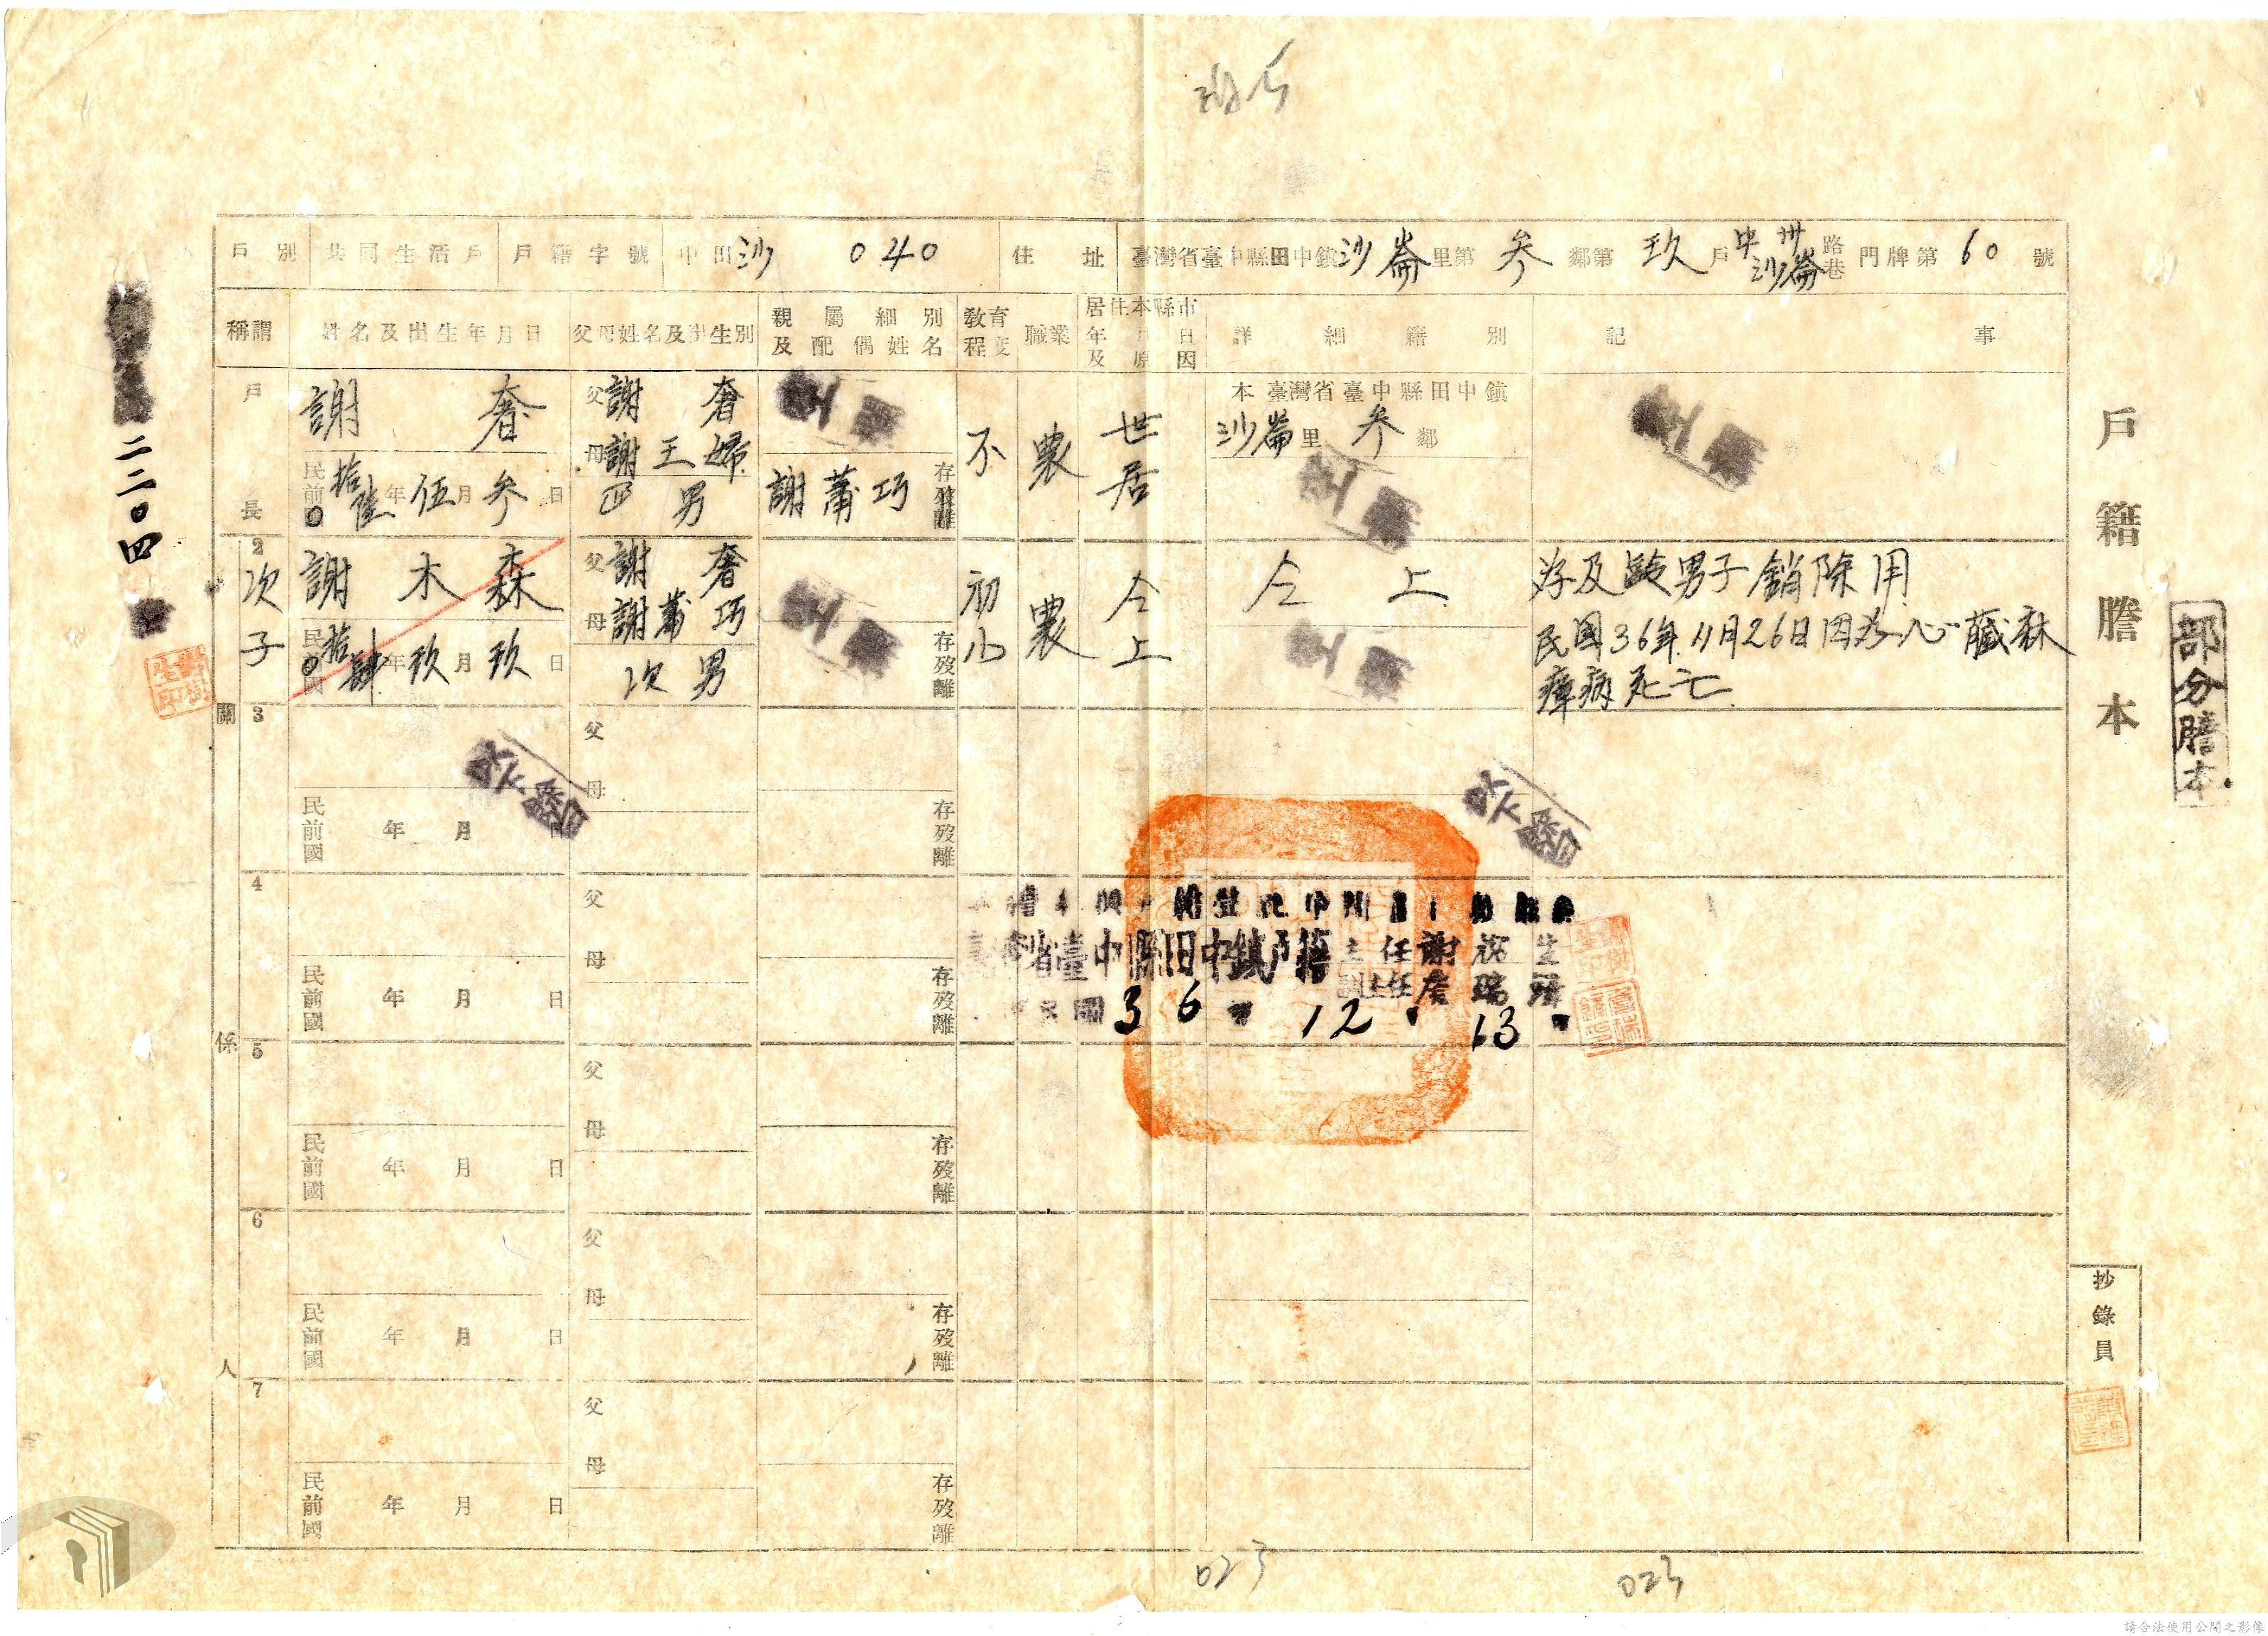 戶籍謄本
部分謄本
戶別 共同生活戶 戶籍字號 中田沙 040 住址 臺灣省臺中縣田中鎮沙崙里第参鄰第玖戶 中州沙崙 路巷 門牌第60號
稱謂 姓名及出生年月日 父母姓名及出生別 親屬細別及配偶姓名 教育程度 職業 居住本縣市年月日及原因 詳細籍別 記事
戶長 謝奢 父謝奢 不 農 世居 本臺灣省臺中縣田中鎮
母謝王婦 沙崙里参鄰
民前拾陸年伍月参日 四男 謝蕭巧 存歿離
2 次子 謝木森 父謝奢 初小 農 仝上 仝上
母謝蕭巧
民國拾肆年玖月玖日 次男 存歿離
役及齡男子銷除用
民国36年11月26日因為心臟麻
痺病死亡
關係人
3 父 母 民前國 年 月 日 存歿離
空白 空白
4 父 母 民前國 年 月 日 存歿離
省臺中縣田中鎮戶籍主任謝
副主任詹瑞
36 12 13
5 父 母 民前國 年 月 日 存歿離
6 父 母 民前國 年 月 日 存歿離
7 父 母 民前國 年 月 日 存歿離
抄錄員
二二〇四
023
023
請合法使用公開之影像